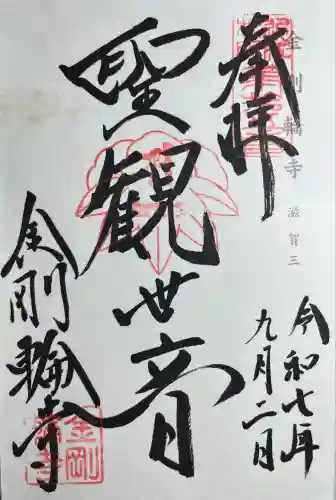 奉拝
金剛輪寺 滋賀三
令和七年
九月二日
聖観世音
金剛輪寺